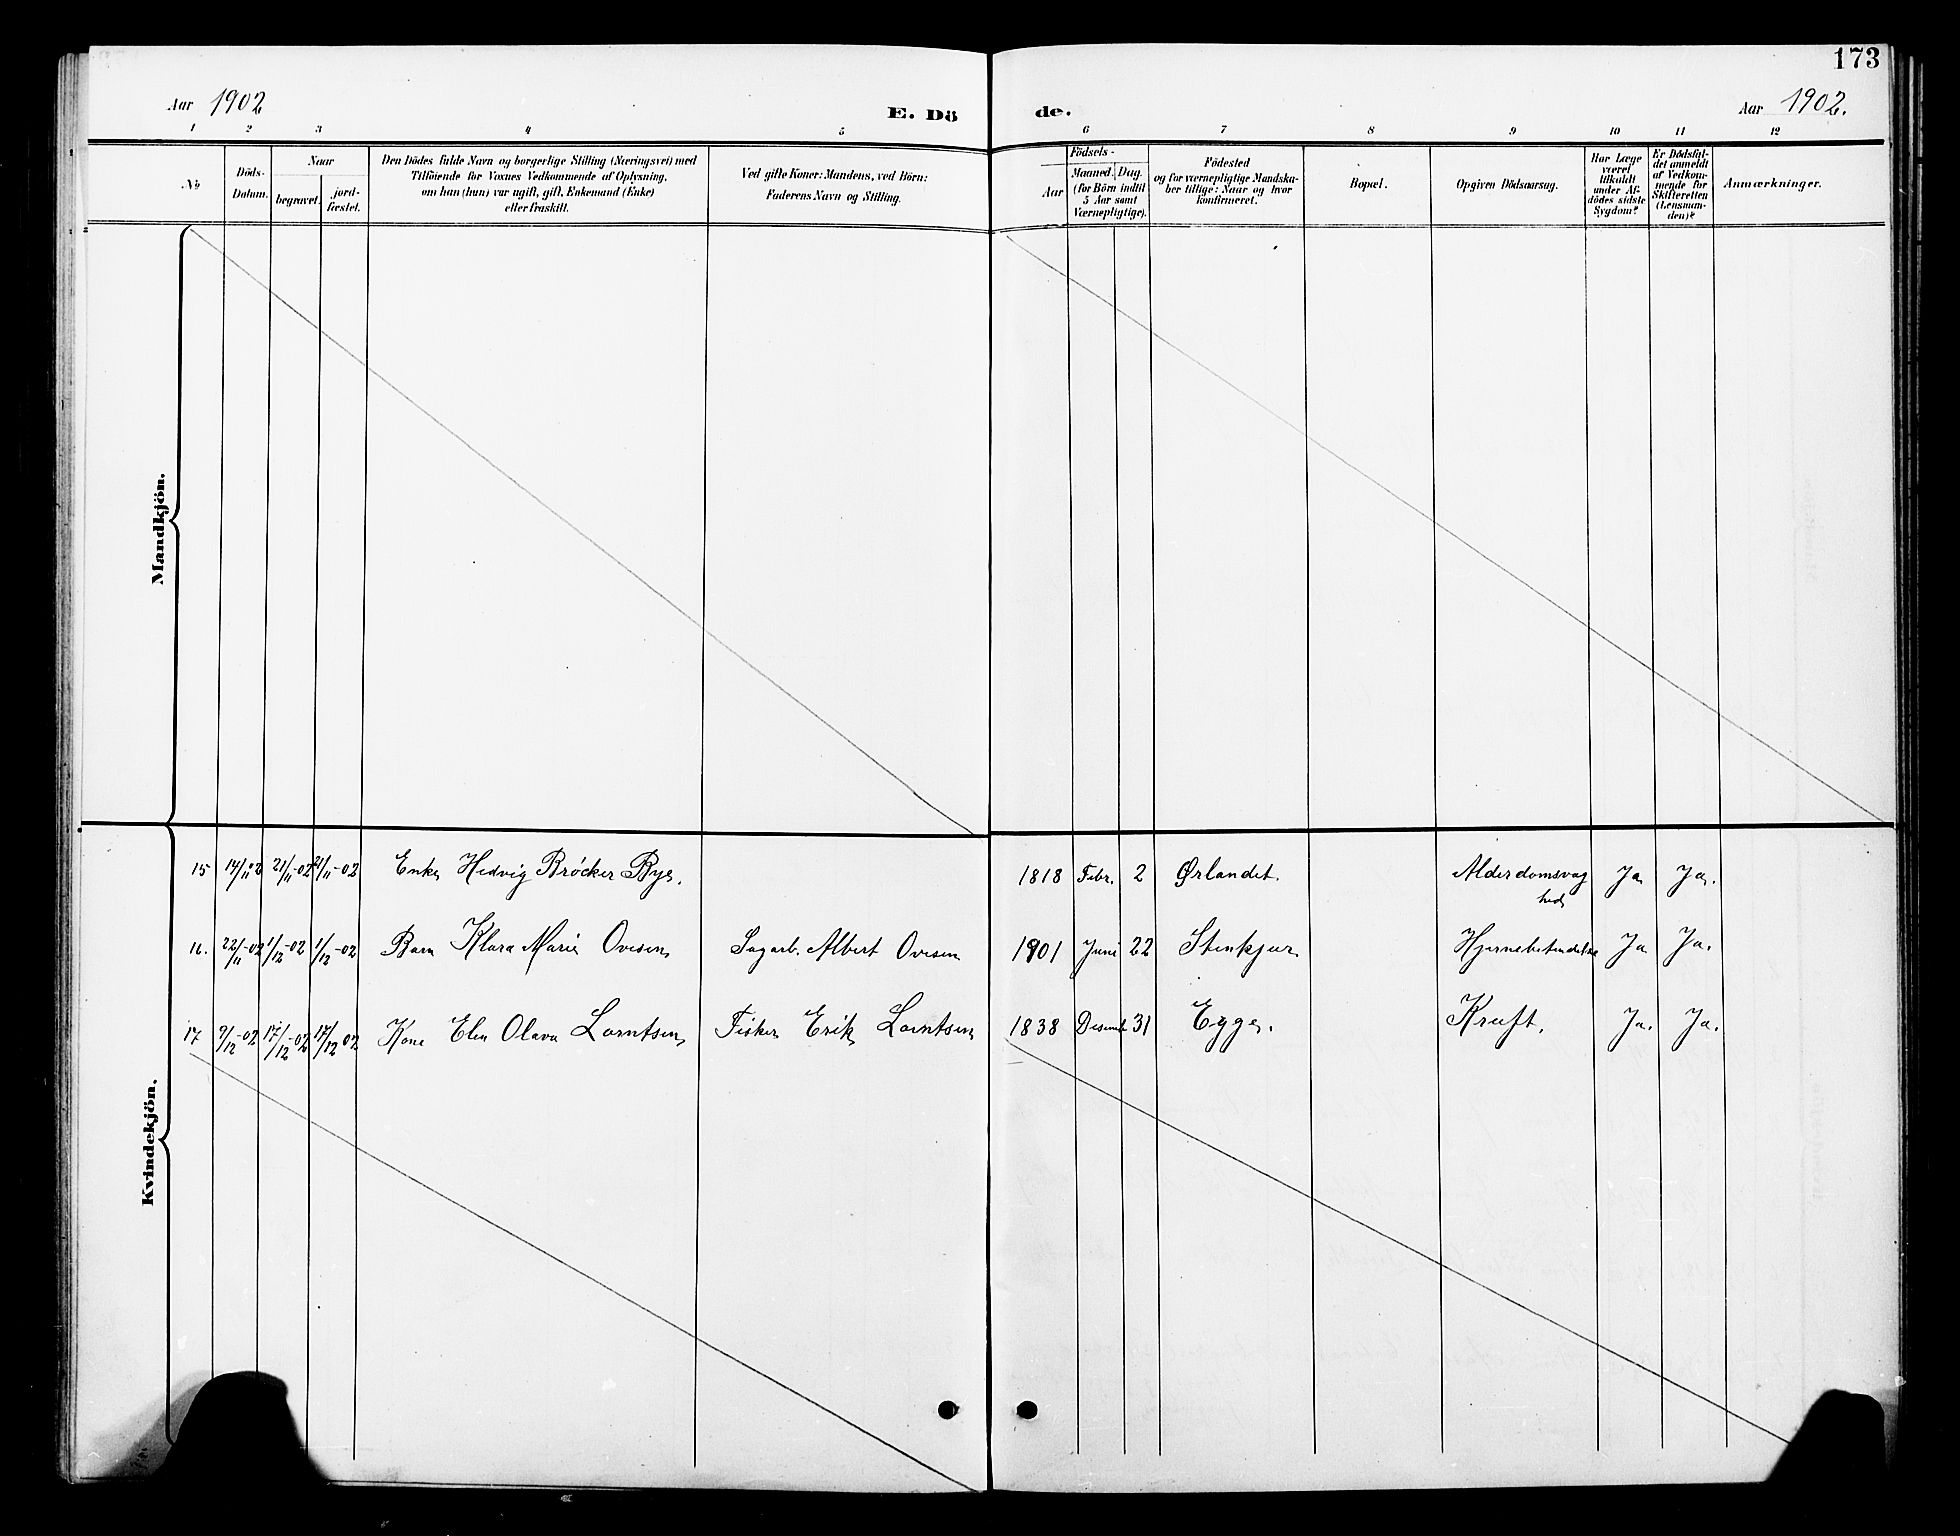 173
Aar 1902
E. Dö
de.
Aar 1902.
1 2 3 4 5 6 7 8 9 10 11 12
No
Döds-
Datum.
Naar
begravet.
jord-
fæstet.
Den Dödes fulde Navn og borgerlige Stilling (Næringsvei) med
Tilföiende for Voxnes Vedkommende af Oplysning,
om han (hun) var ugift, gift, Enkemand (Enke)
eller fraskilt.
Ved gifte Koner: Mandens, ved Börn:
Faderens Navn og Stilling.
Födsels-
Aar
Maaned. Dag.
(for Börn indtil
5 Aar samt
Værnepligtige).
Födested
og for værnepligtige Mandska-
ber tillige: Naar og hvor
konfirmeret.
Bopæl.
Opgiven Dödsaarsag.
Har Læge
været
tilkaldt
under Af-
dödes sidste
Sygdom?
Er Dödsfal-
det anmeldt
af Vedkom-
mende for
Skifteretten
(Lensman-
den)?
Anmærkninger.
Mandkjön.
Kvindekjön.
15 14/11 02 21/11-02 21/11-02 Enke Hedvig Bröcker Bye. 1818 Febr. 2 Ørlandet. Alderdomsvag Ja Ja.
hed
16. 22/11-02 1/12-02 1/12-02 Barn Klara Marie Ovesen Sagarb. Albert Ovesen 1901 Juni 22 Stenkjær. Hjernebetendelse Ja Ja.
17 9/12-02 17/12-02 17/12 02 Kone Elen Olava Lorntsen Fisker Erik Lorntsen 1838 Desemb 31 Egge. Kræft. Ja. Ja.